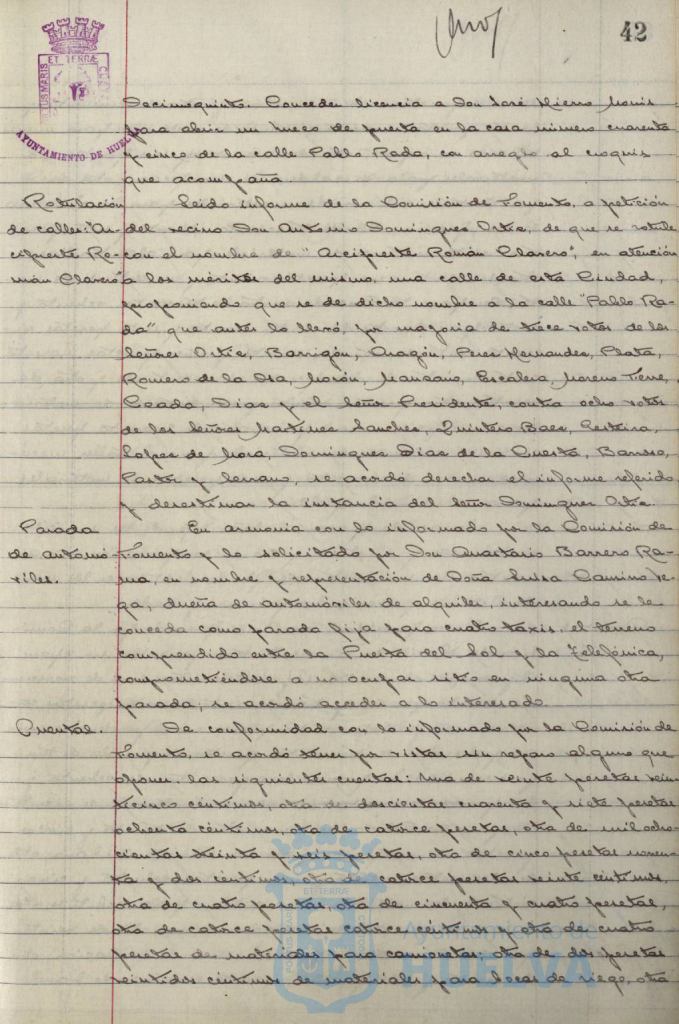 42
PORTUS MARIS ET TERRÆ CUSTODIA
AYUNTAMIENTO DE HUELVA
Decimoquinto. Conceder licencia a Don José Hierro
para abrir un hueco de puerta en la casa número cuarenta
y cinco de la calle Pablo Rada, con arreglo al croquis
que acompaña.
Rotulación
de calles: "Ar-
cipreste Ro-
mán Clavero"
Leido informe de la Comisión de Fomento, a petición
del vecino Don Antonio Dominguez Ortiz, de que se rotule
con el nombre de "Arcipreste Román Clavero", en atención
a los méritos del mismo, una calle de esta Ciudad,
proponiendo que se de dicho nombre a la calle "Pablo Ra-
da" que antes lo llevó, por mayoria de trece votos de los
Señores Ortiz, Barrigón, Aragón, Perez Hernandez, Plata,
Romero de la Osa, Morón, Manzano, Escalera, Moreno
Ceada, Diaz y el Señor Presidente, contra ocho votos
de los Señores Martinez Sanchez, Quintero Baez, Terteira,
Lopez de Mora, Dominguez Diaz de la Cuesta, Barroso,
Pastor y Serrano, se acordó desechar el informe referido
y desestimar la instancia del Señor Dominguez Ortiz.
Parada
de automó-
viles.
En armonia con lo informado por la Comisión de
Fomento y lo solicitado por Don Anastasio Barrero Ra-
ma, en nombre y representación de Doña Luisa Camino Ve-
ga, dueña de automóviles de alquiler, interesando se le
conceda como parada fija para cuatro taxis, el terreno
comprendido entre la Puerta del Sol y la Telefónica,
comprometiéndose a no ocupar sitio en ninguna otra
parada, se acordó acceder a lo interesado.
Cuentas.
De conformidad con lo informado por la Comisión de
Fomento, se acordó tener por vistas sin reparo alguno que
oponer, las siguientes cuentas: una de veinte pesetas vein-
ticinco céntimos, otra de doscientas cuarenta y siete pesetas
ochenta céntimos, otra de catorce pesetas, otra de mil ocho-
cientas treinta y seis pesetas, otra de cinco pesetas noven-
ta y dos céntimos, otra de catorce pesetas veinte céntimos,
otra de cuatro pesetas, otra de cincuenta y cuatro pesetas,
otra de catorce pesetas catorce céntimos y otra de cuatro
pesetas de materiales para camionetas; otra de dos pesetas
veintidos céntimos de materiales para bocas de riego, otra
Ayuntamiento de
HUELVA